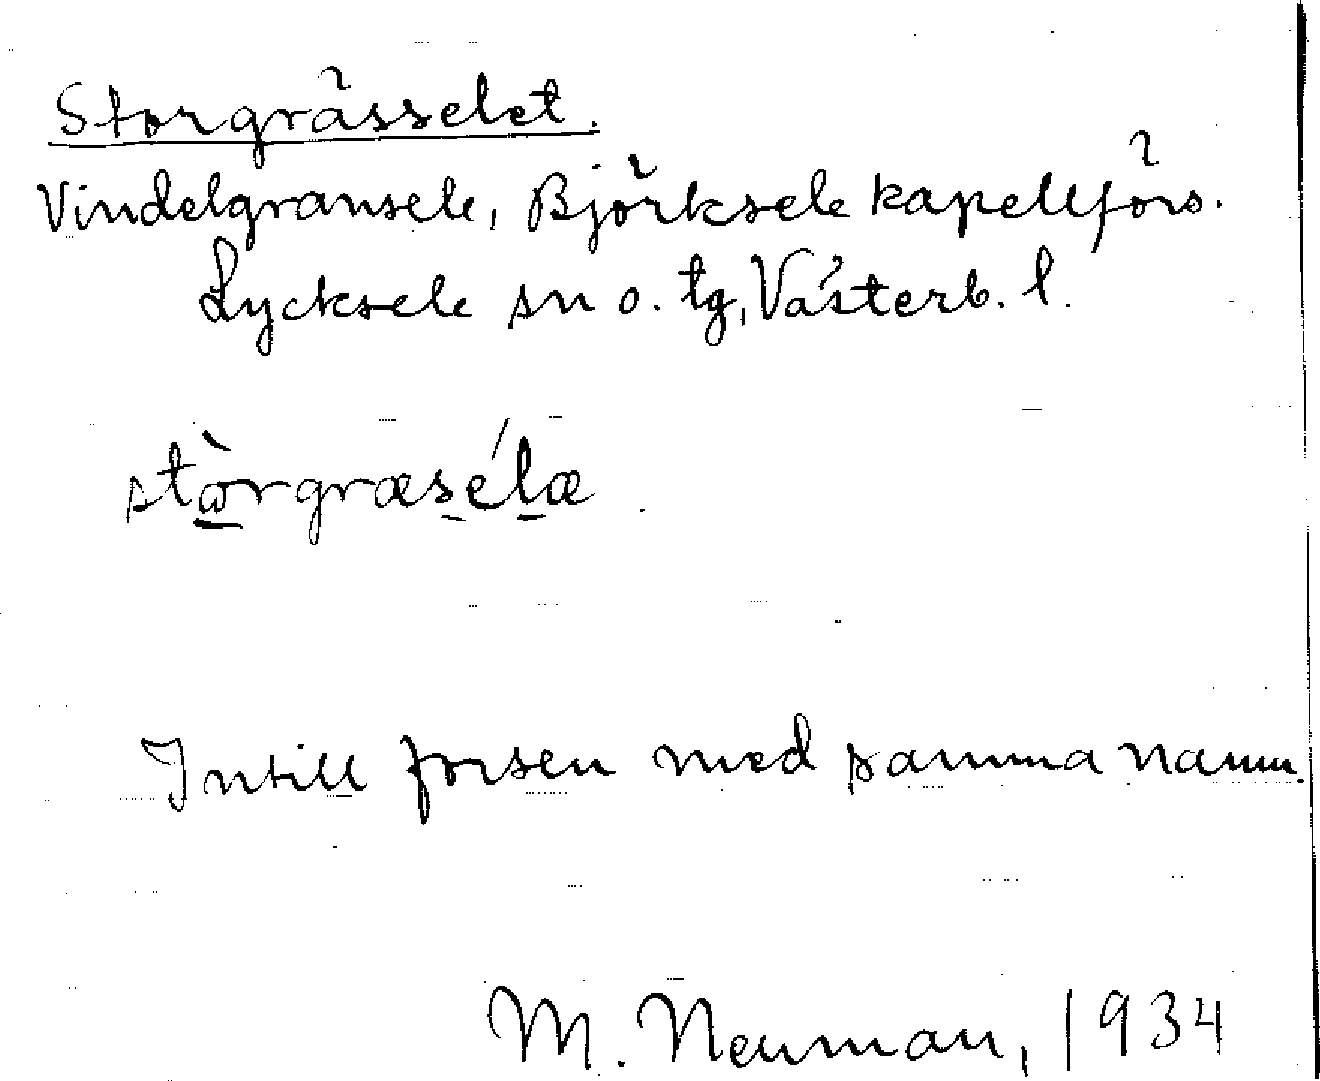 Storgrässelet.
Vindelgransele, Björksele kapellförs.
Lycksele sn o. tg, Västerb. l.
stòrgræsélæ
Intill forsen med samma namn.
M. Neuman, 1934